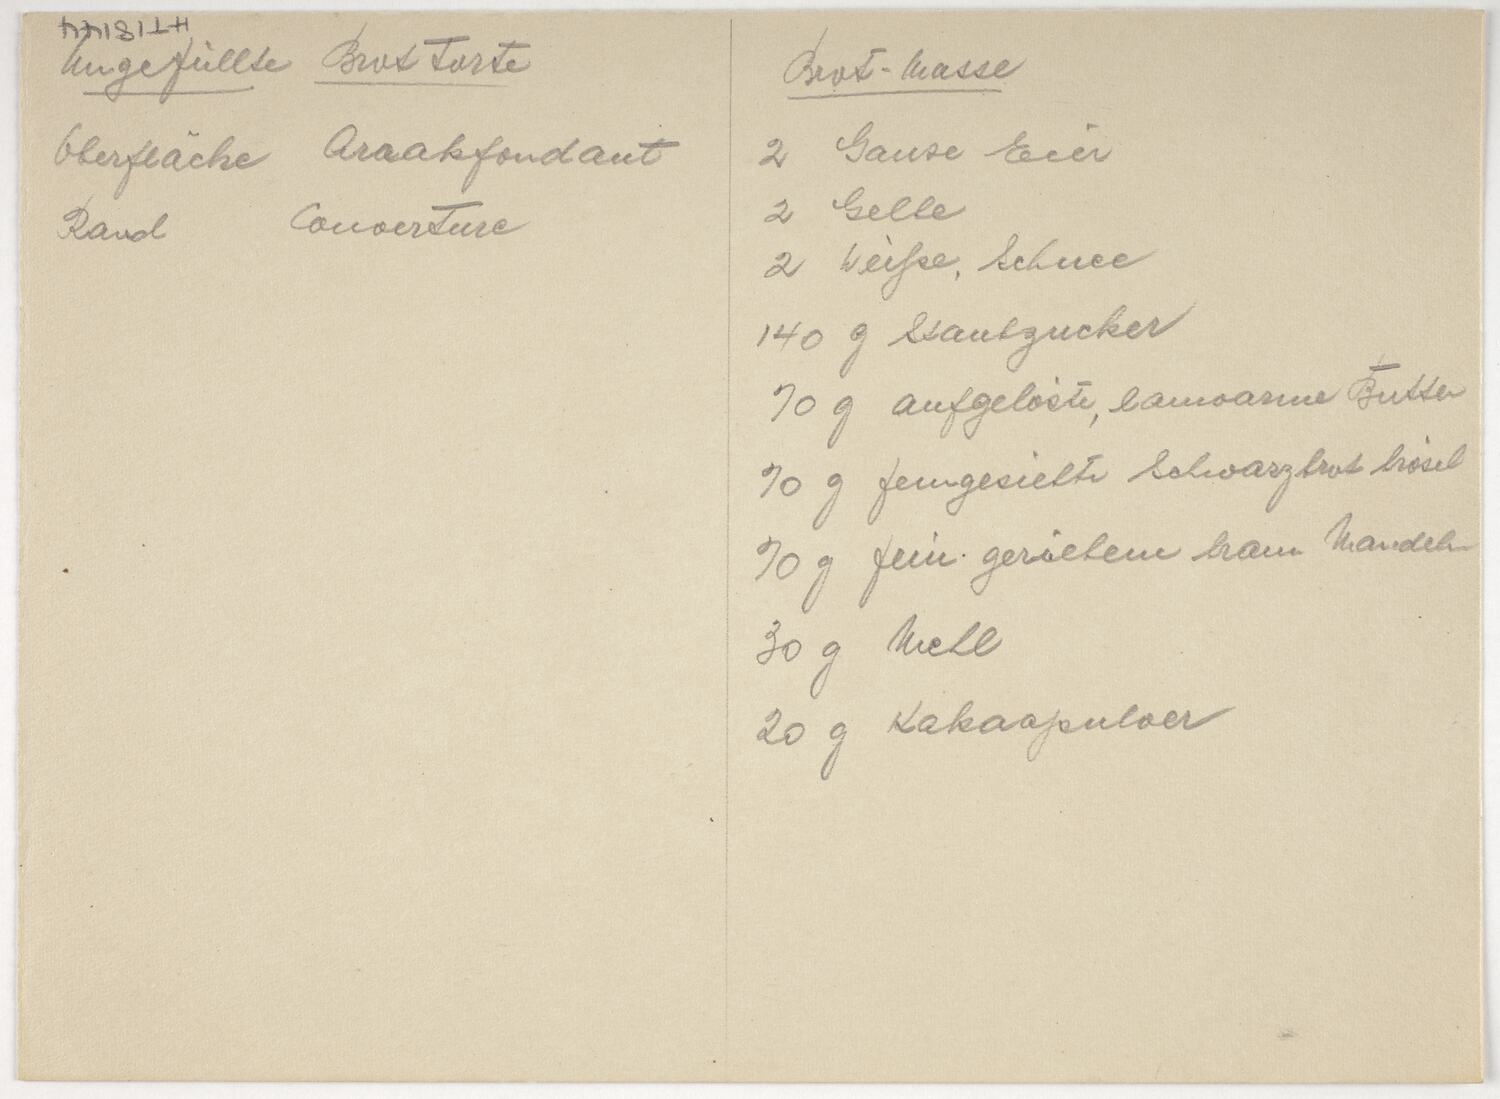 HT18144
Ungefüllte Brot Torte
Oberfläche Araakfondant
Rand Couverture
Brot-Masse
2 Ganse Eier
2 Gelbe
2 Weiße, Schnee
140 g Staubzucker
70 g aufgelöste, lauwarme Butter
70 g feingesiebte Schwarzbrot brösel
70 g fein geriebene braun Mandeln
30 g Mehl
20 g Kakaopulver